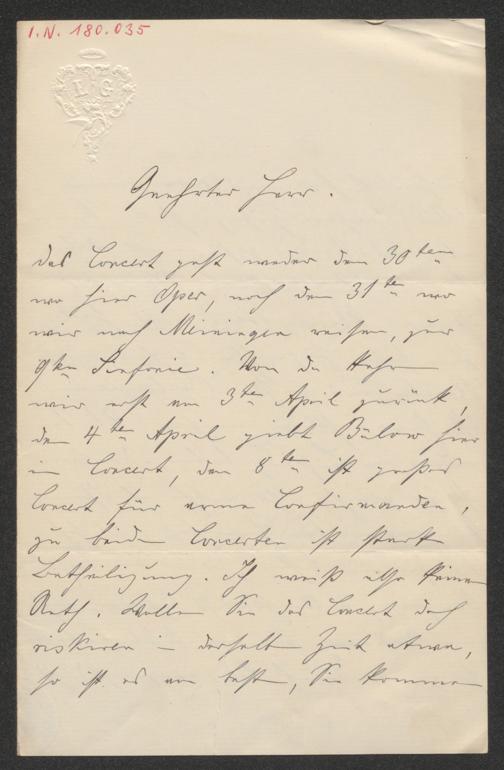 I.N. 180.035
L G
Geehrter Herr.
das Concert geht weder den 30ten
wo hier Oper, noch den 31ten wo
wir nach Meiningen reisen, zur
9ten Sinfonie. Von da kehren
wir erst am 3ten April zurück,
den 4ten April giebt Bülow hier
ein Concert, den 8ten ist großes
Concert für arme Confirmanden,
zu beiden Concerten ist starke
Betheiligung. Ich weiß also keinen
Rath. Wollen Sie das Concert doch
riskiren in derselben Zeit etwa,
so ist es am besten, Sie kommen